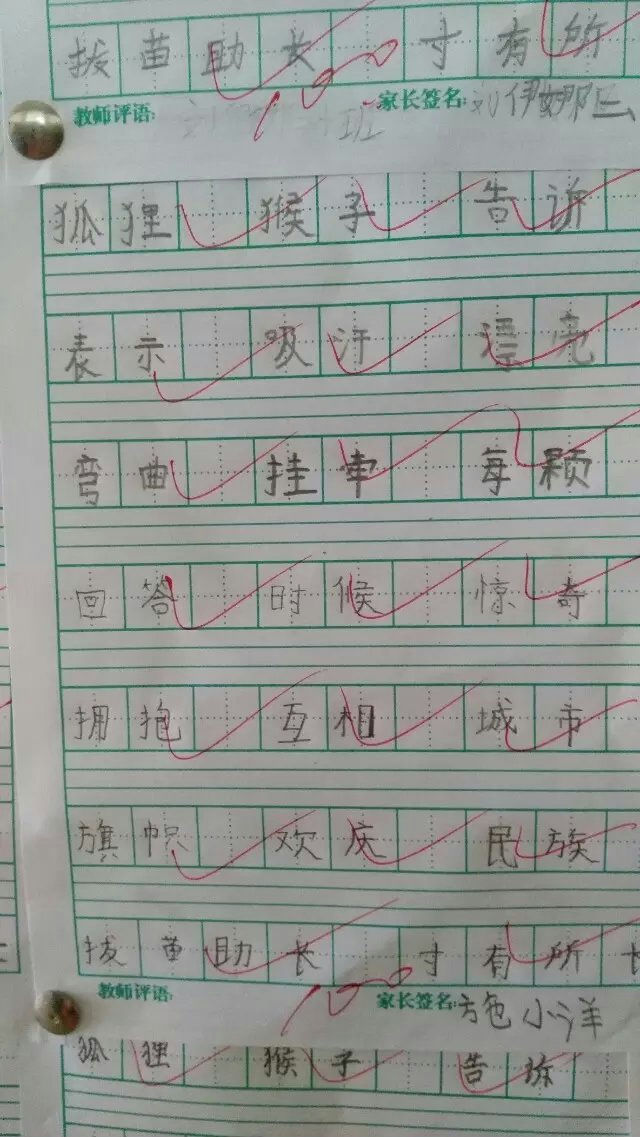 拔苗助长 寸有所
教师评语: 100 家长签名:
狐狸 猴子 告诉
表示 吸汗 漂亮
弯曲 挂牵 每颗
回答 时候 惊奇
拥抱 互相 城市
旗帜 欢庆 民族
拔苗助长 寸有所长
教师评语: 100 家长签名: 小洋
狐狸 猴子 告诉